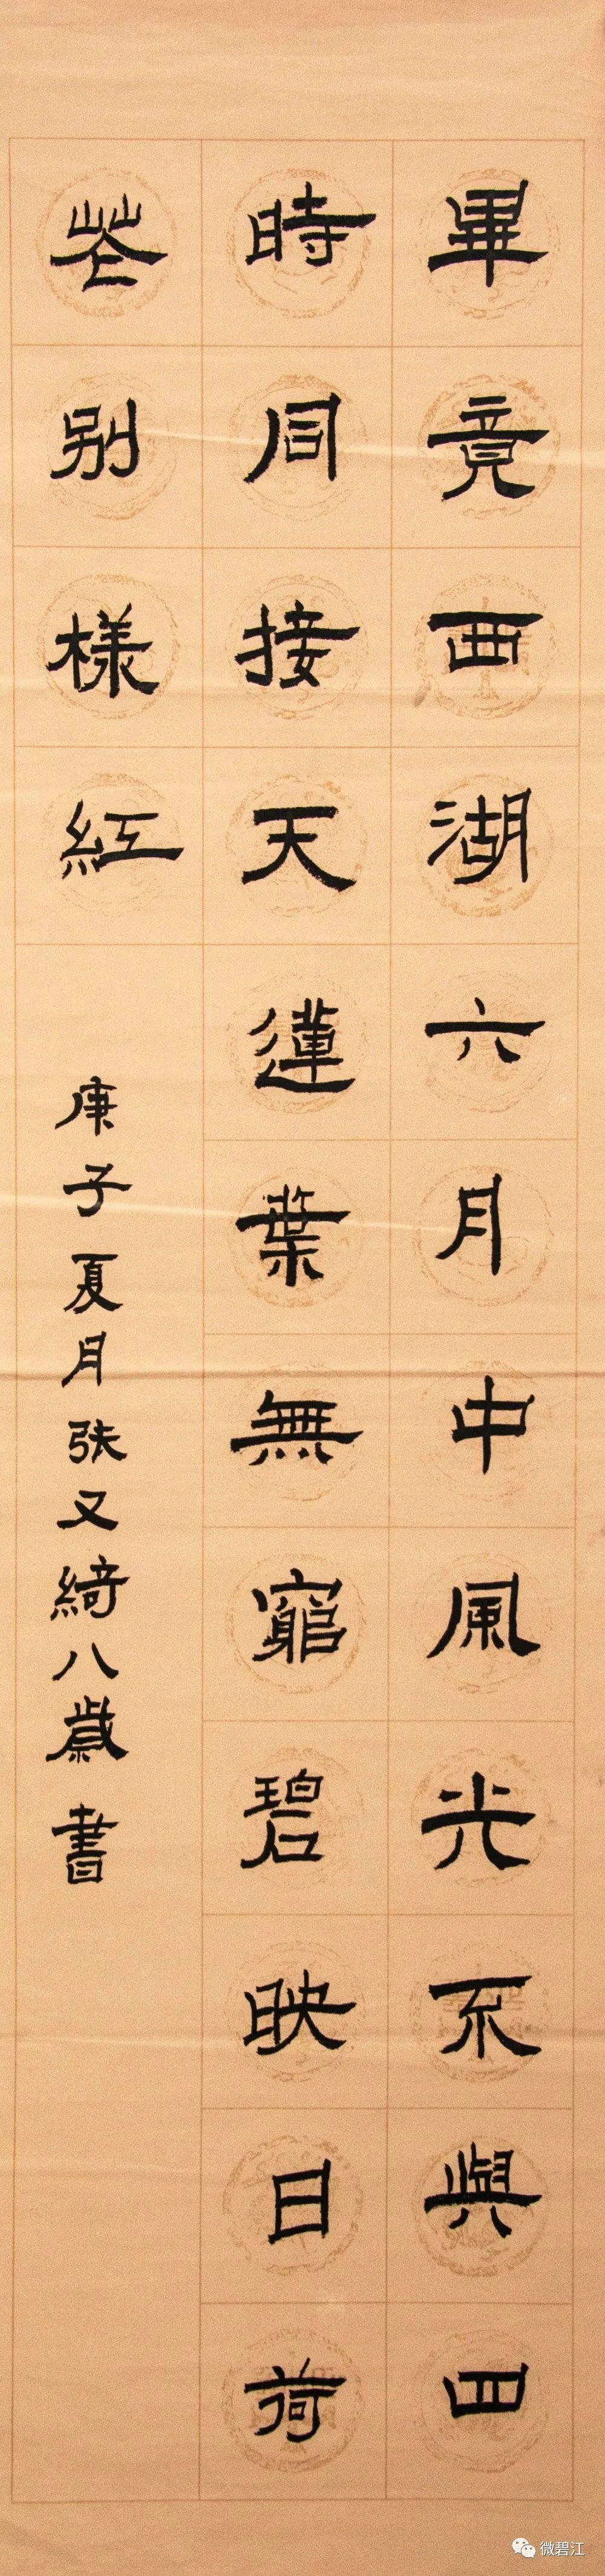 畢竟西湖六月中風光不與四
時同接天蓮葉無窮碧映日荷
花別樣紅
庚子夏月張又綺八歲書
微碧江